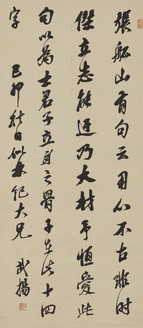 張船山有句云用心不古非時
傑立志能遠乃大材予恒愛此
句以為士君子立身之骨子在此十四
字 己卯秋日以奉紀大兄 武揚